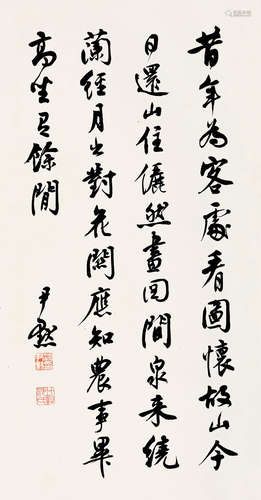 昔年為客處看圖懷故山今
日還山住儼然畫圖間泉来繞
蘭徑月出對花關應知農事畢
高坐有餘閒
尹默